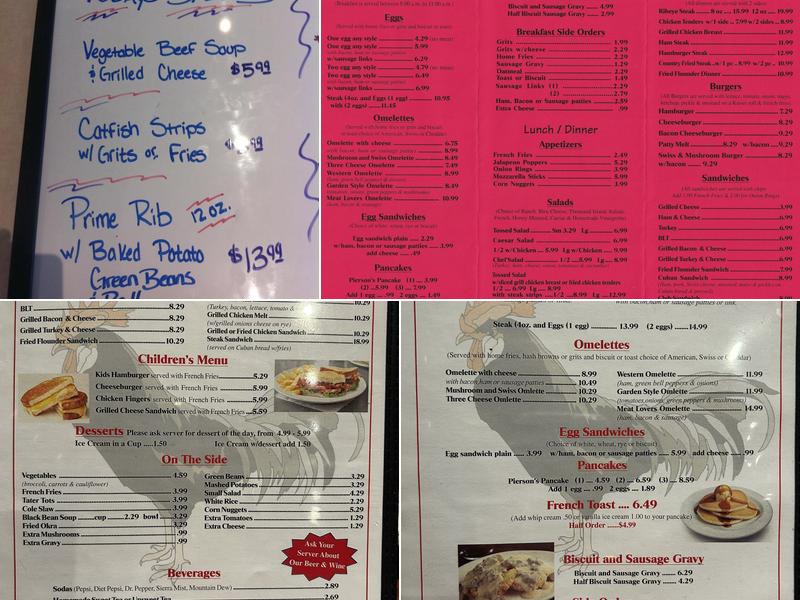 Vegetable Beef Soup
& Grilled Cheese $5.99
Catfish Strips
w/ Grits or Fries
Prime Rib 12oz.
w/ Baked Potato $13.99
Green Beans
(Breakfast is served between
Eggs
(Served with home fries or grits and biscuit or toast)
One egg any style 4.29 (no meat)
One egg any style 5.99
with bacon, ham or sausage patties
w/sausage links 6.29
Two egg any style 4.79 (no meat)
Two egg any style 6.49
with bacon, ham or sausage patties
w/sausage links 6.99
Steak (4oz. and Eggs (1 egg) 10.95
with (2 eggs) 11.45
Omelettes
(Served with home fries or grits and biscuit
or toast choice of American, Swiss or Cheddar)
Omelette with cheese 6.75
with bacon, ham or sausage patties 8.99
Mushroom and Swiss Omelette 8.49
Three Cheese Omelette 7.49
Western Omelette 8.99
(ham, green bell pepper & onions)
Garden Style Omlette 8.49
(tomatoes, onions, green peppers & mushrooms)
Meat Lovers Omelette 10.99
(ham, bacon & sausage)
Egg Sandwiches
(Choice of white, wheat, rye or biscuit)
Egg sandwich plain 2.29
w/ham, bacon or sausage patties 3.99
add cheese .49
Pancakes
Pierson's Pancakes (1) 3.99
(2) 5.99 (3) 7.99
Add 1 egg .99 2 eggs 1.49
Biscuit and Sausage Gravy 4.99
Half Biscuit Sausage Gravy 2.99
Breakfast Side Orders
Grits 1.99
Grits w/cheese 2.29
Home Fries 2.29
Sausage Gravy 1.29
Oatmeal 2.29
Toast or Biscuit 1.49
Sausage Links (1) 2.29
(2) 2.79
Ham, Bacon or Sausage patties 2.59
Extra Cheese .99
Lunch / Dinner
Appetizers
French Fries 2.49
Jalapeno Poppers 5.29
Onion Rings 3.99
Mozzarella Sticks 5.99
Corn Nuggets 3.99
Salads
Tossed Salad Sm 3.29 lg 6.99
Caesar Salad 6.99
1/2 w/Chicken 5.99 lg w/Chicken 9.99
Chef Salad 1/2 8.99 lg 8.99
(Turkey, ham, cheese, onion, tomatoes & cucumber)
Tossed Salad
w/sliced grill chicken breast or fried chicken tenders
1/2 6.99 lg 8.99
with steak strips 1/2 8.99 lg 12.99
(All dinners are served with 2 sides)
Ribeye Steak 8 oz 15.99 12 oz 19.99
Chicken Tenders w/1 side 7.99 w/2 sides 8.99
Grilled Chicken Breast 11.99
Ham Steak 11.99
Hamburger Steak 12.99
Country Fried Steak w/1 pc 8.99 w/2 pc 10.99
Fried Flounder Dinner 10.99
Burgers
Hamburger 7.29
Cheeseburger 8.29
Bacon Cheeseburger 9.29
Patty Melt 8.29 w/bacon 9.29
Swiss & Mushroom Burger 8.29
w/bacon 9.29
Sandwiches
(All sandwiches are served with chips
Grilled Cheese 3.99
Ham & Cheese 6.99
Turkey 6.99
BLT 6.99
Grilled Bacon & Cheese 6.99
Grilled Turkey & Cheese 6.99
Fried Flounder Sandwich 7.99
Cuban Sandwich 8.99
BLT 8.29
Grilled Bacon & Cheese 8.29
Grilled Turkey & Cheese 8.29
Fried Flounder Sandwich 10.29
(Turkey, bacon, lettuce, tomato &
Grilled Chicken Melt 10.29
(w/grilled onions cheese on rye)
Grilled or Fried Chicken Sandwich 10.29
Steak Sandwich 18.99
(served on Cuban bread w/fries)
Children's Menu
Kids Hamburger served with French Fries 5.29
Cheeseburger served with French Fries 5.99
Chicken Fingers served with French Fries 5.99
Grilled Cheese Sandwich served with French Fries 5.59
Desserts Please ask server for dessert of the day, from 4.99 - 5.99
Ice Cream in a Cup 1.50 Ice Cream w/dessert add 1.50
On The Side
Vegetables 4.59
(broccoli, carrots & cauliflower)
French Fries 3.99
Tater Tots 3.99
Cole Slaw 3.99
Black Bean Soup cup 2.29 bowl 3.29
Fried Okra 3.29
Extra Mushrooms .99
Extra Gravy .99
Green Beans 3.29
Mashed Potatoes 3.29
Small Salad 4.29
White Rice 2.29
Corn Nuggets 5.29
Extra Tomatoes 1.29
Extra Cheese 1.29
Ask Your
Server About
Our Beer & Wine
Beverages
Sodas (Pepsi, Diet Pepsi, Dr. Pepper, Sierra Mist, Mountain Dew) 2.89
Homemade Sweet Tea or Unsweet Tea 2.69
with bacon, ham or sausage patties or link.
Steak (4oz. and Eggs (1 egg) 13.99 (2 eggs) 14.99
Omelettes
(Served with home fries, hash browns or grits and biscuit or toast choice of American, Swiss or Cheddar)
Omelette with cheese 8.99
with bacon, ham or sausage patties 10.49
Mushroom and Swiss Omlette 10.29
Three Cheese Omlette 10.29
Western Omelette 11.99
(ham, green bell peppers & onions)
Garden Style Omlette 11.99
(tomatoes, onions, green peppers & mushrooms)
Meat Lovers Omlette 14.99
(ham, bacon & sausage)
Egg Sandwiches
(Choice of white, wheat, rye or biscuit)
Egg sandwich plain 3.99 w/ham, bacon or sausage patties 5.99 add cheese .99
Pancakes
Pierson's Pancake (1) 4.59 (2) 6.59 (3) 8.59
Add 1 egg .99 2 eggs 1.89
French Toast .... 6.49
(Add whip cream .50 or vanilla ice cream 1.00 to your pancake)
Half Order $4.99
Biscuit and Sausage Gravy
Biscuit and Sausage Gravy 6.29
Half Biscuit Sausage Gravy 4.29